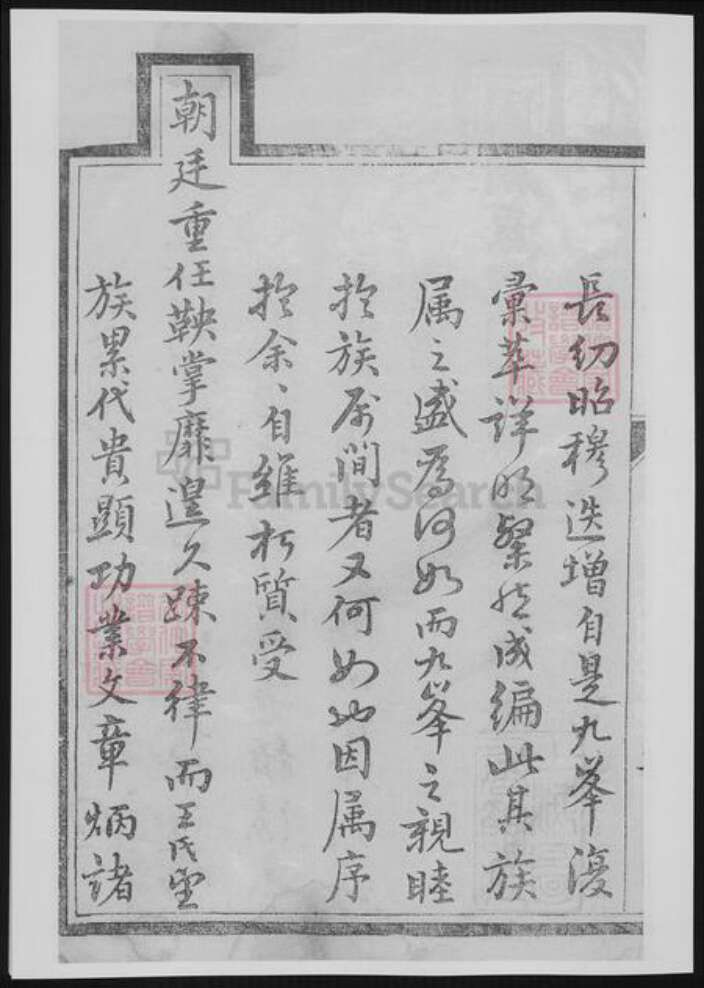 長幼昭穆迭增自是九峯復
彙萃詳明粲然成編此其族
属之盛為何如而九峯之親睦
於族属間者又何如也因属序
於余、自維朽質受
朝廷重任鞅掌靡遑久疎不律而王氏望
族累代貴顯功業文章炳諸
FamilySearch